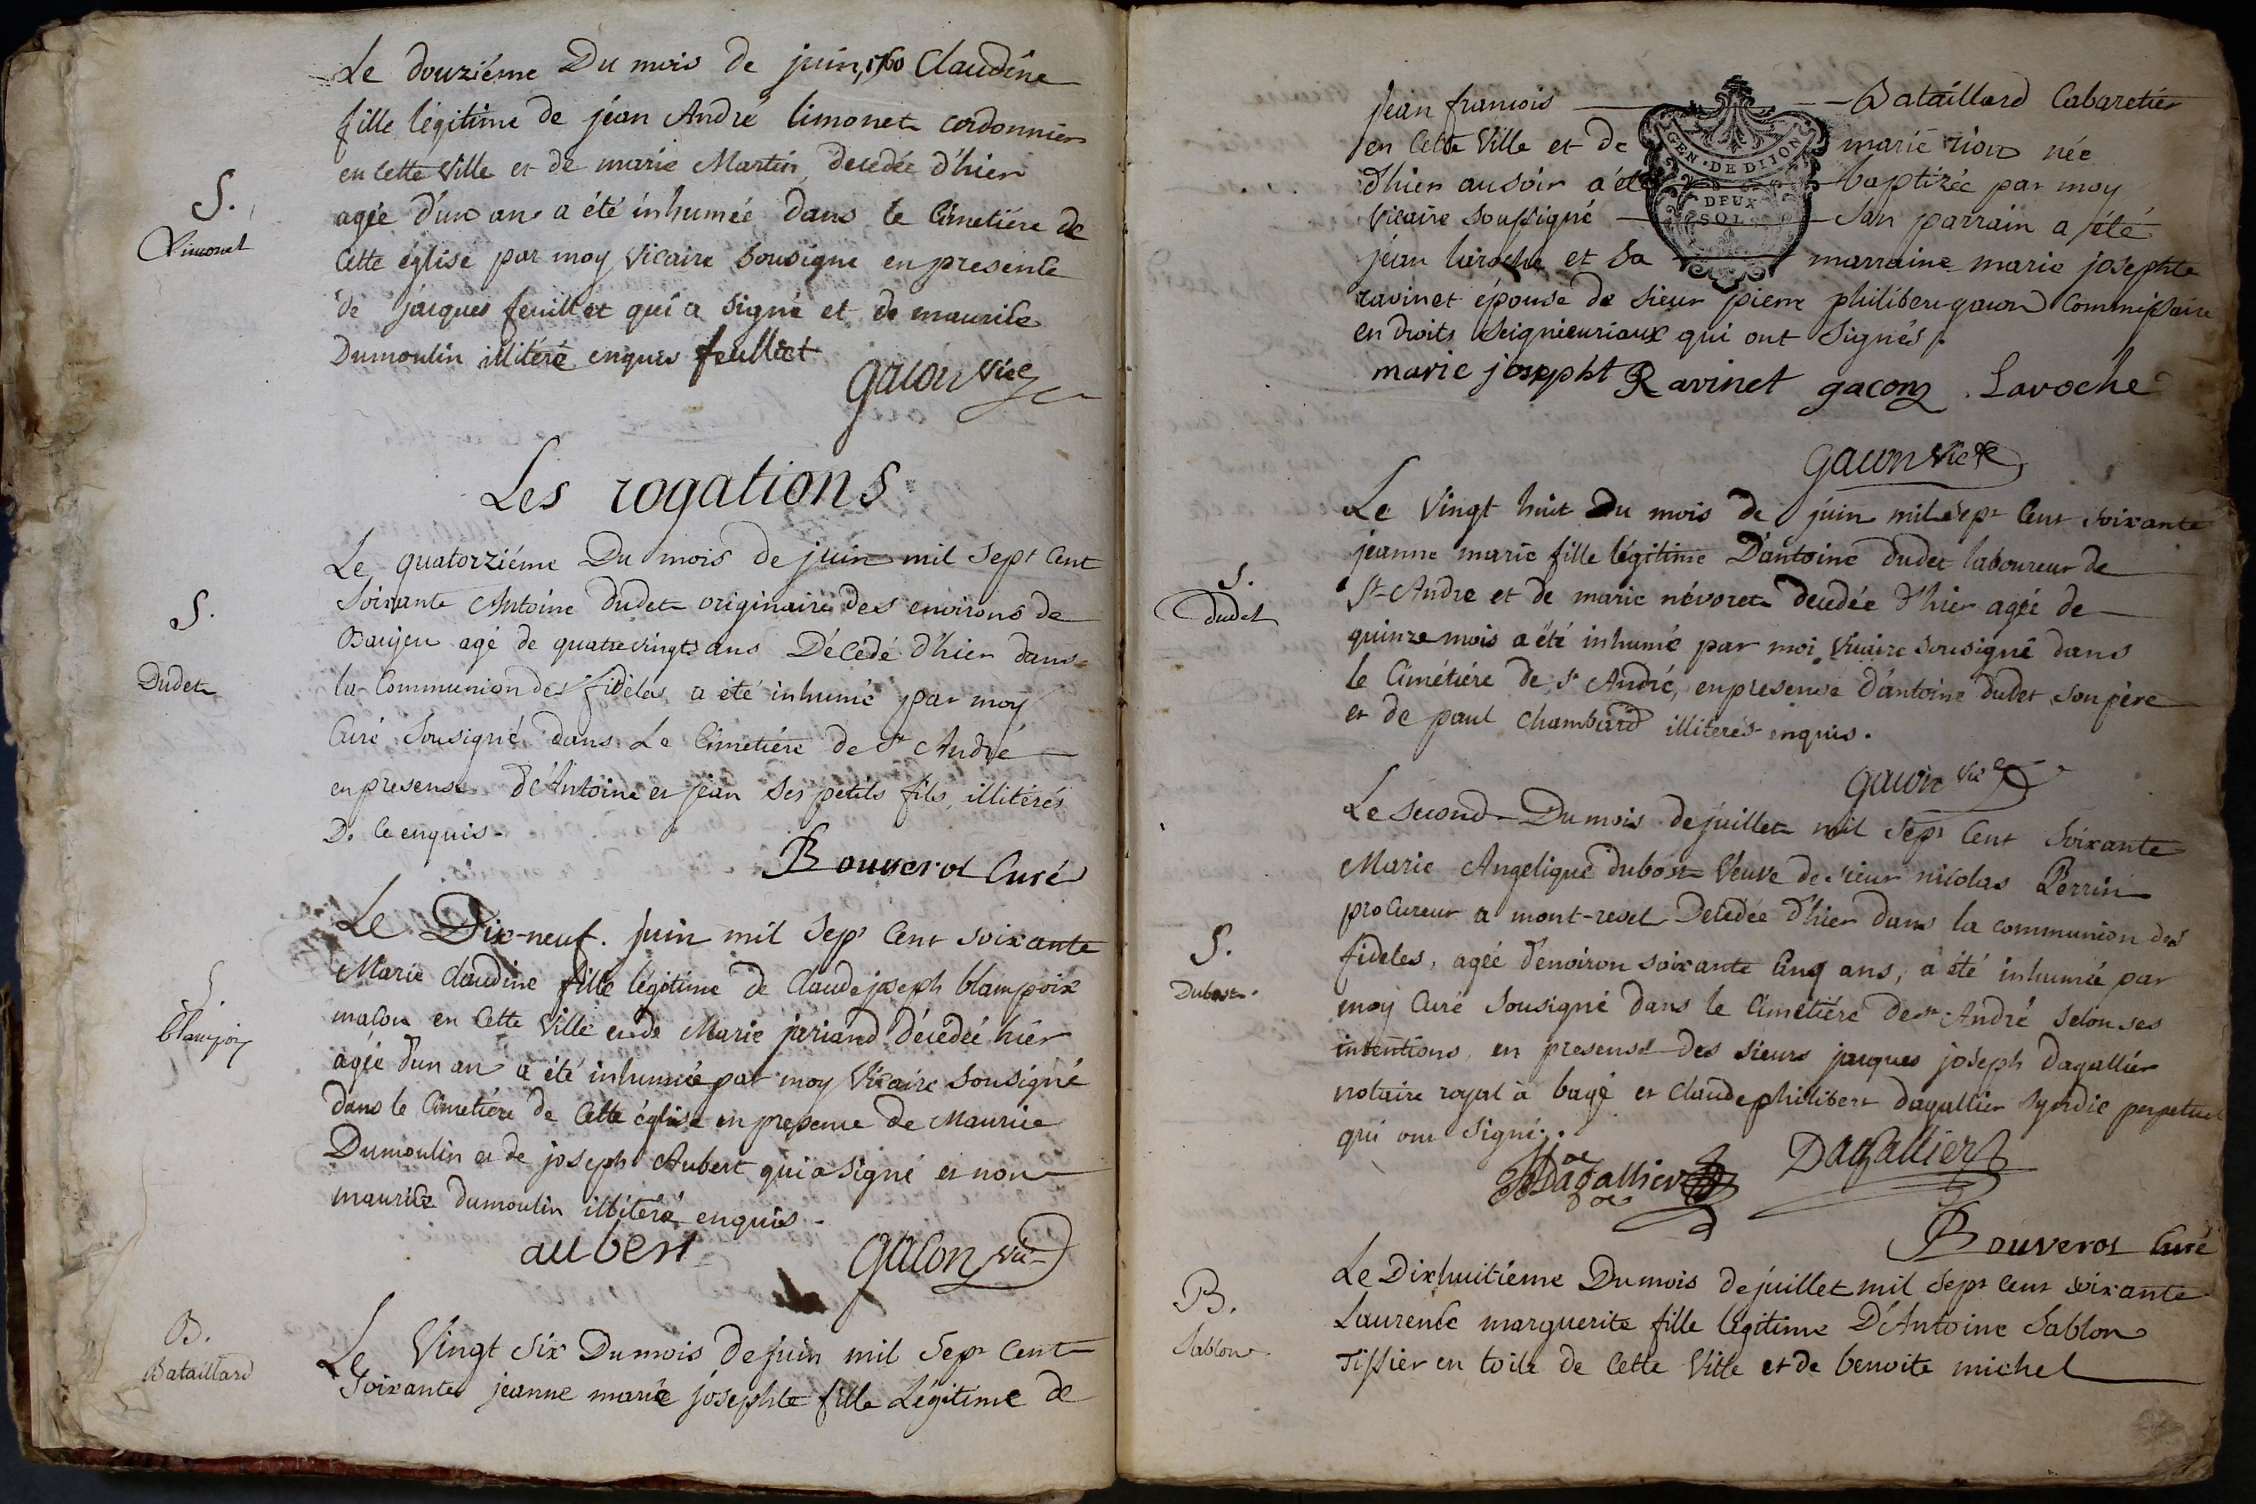 Le douziéme Du mois de juin, 1760 Claudine
fille légitime de jean André limonet cordonnier
en cette Ville et de marie Martin, decedée d'hier
S.
Limonet
agée d'un an a été inhumée dans le Cimetiére de
Cette église par moy Vicaire Sousigné en presence
de jacques feuillet qui a signé et de maurice
Dumoulin illitéré enquis feulliet
gacon Vice
Les rogations
Le quatorziéme Du mois de juin mil Sept Cent
S.
Dudet
Soixante Antoine Dudet originaire des environs de
Baujeu agé de quatrevingts ans Décédé d'hier dans
la Communion des fidéles a été inhumé par moy
Curé Sousigné dans Le Cimetiére de St André
en presense d'Antoine et jean Ses petits fils, illitérés
De Ce enquis.
Bouverot Curé
Le Dix-neuf. juin mil Sept Cent soixante
S
blampoix
Marie Claudine fille légitime de Claudejoseph blampoix
maçon en Cette Ville et de Marie jeriand décédée hier
agée d'un an a été inhumée par moy Vicaire Sousigné
dans le Cimetiére de Cette église en presence de Maurice
Dumoulin et de joseph Aubert qui a signé et non
maurice dumoulin illitéré enquis.
aubert gacon vic
B.
Bataillard
Le Vingt Six Du mois de juin mil Sept Cent
Soixante jeanne marie josephte fille Légitime de
jean francois Bataillard Cabaretier
en Cette Ville et de marie rion née
d'hier au soir a été baptizée par moy
Vicaire soussigné Son parrain a été
jean laroche et Sa marraine marie josephte
ravinet épouse de sieur pierre philibert gacon Commissaire
en droits Seigneuriaux qui ont Signés.
GEN. DE DIJON
DEUX
SOLS
marie josepht Ravinet gacon . Laroche
gacon vice
Le Vingt huit Du mois de juin mil Sept Cent soixante
S.
dudet
jeanne marie fille légitime D'antoine dudet laboureur de
St André et de marie névoret decedée d'hier agée de
quinze mois a été inhumé par moi Vicaire Sousigné dans
le Cimétiére de St André, en presense d'antoine dudet son père
et de paul Chambard illiterés enquis.
gacon vice
Le Second Du mois de juillet mil Sept Cent Soixante
S.
Dubost.
Marie Angelique dubost Veuve de sieur nicolas Perrin
procureur a mont-revel Decedée d'hier dans la communion des
fideles, agée d'environ soixante Cinq ans, a été inhumée par
moy Curé Sousigné dans le Cimétiére de St André Selon ses
intentions, en presense des sieurs jacques joseph Dagallier
notaire royal à bagé et Claudephilibert dagallier Syndic perpetuel
qui ont Signé.
Dagallier Dagallier
Bouverot Curé
B.
Sablon
Le Dixhuitiéme Du mois de juillet mil Sept Cent soixante
Laurence marguerite fille légitime D'Antoine Sablon
Tissier en toile de Cette Ville et de benoite michel